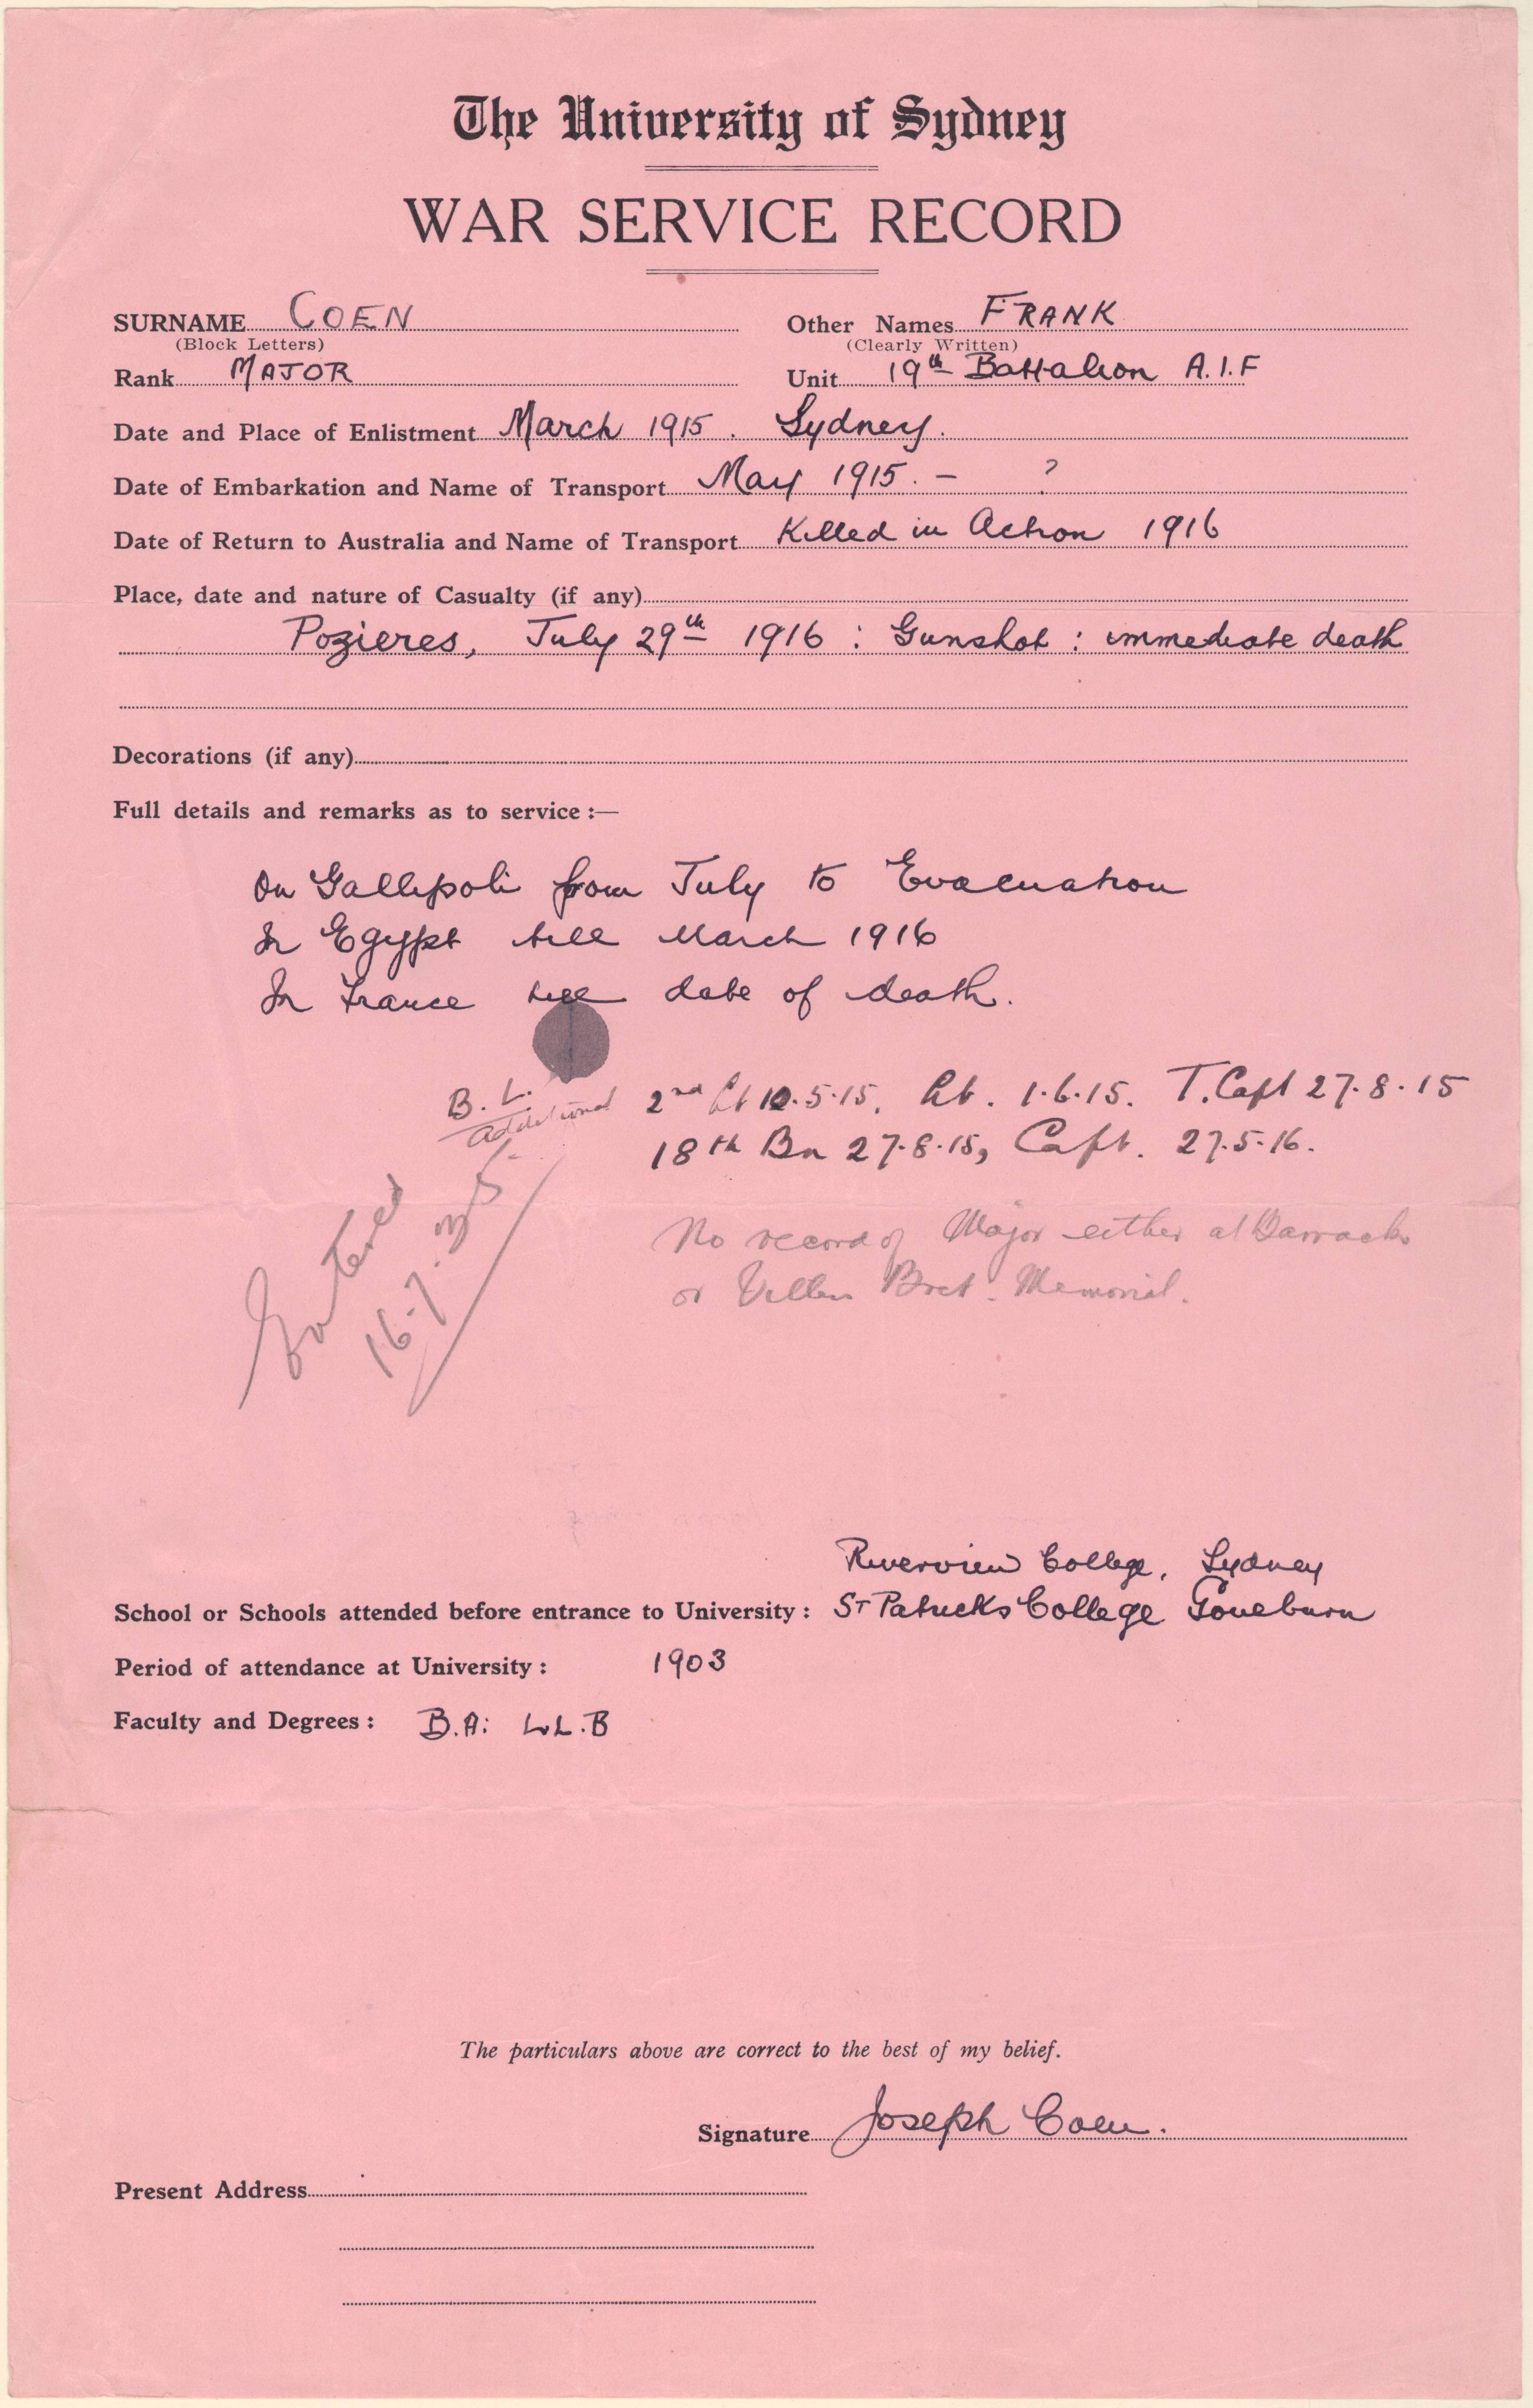 The University of Sydney
WAR SERVICE RECORD
SURNAME COEN Other Names FRANK
(Block Letters) (Clearly Written)
Rank MAJOR Unit 19th Battalion A.I.F
Date and Place of Enlistment March 1915. Sydney.
Date of Embarkation and Name of Transport May 1915. - ?
Date of Return to Australia and Name of Transport Killed in Action 1916
Place, date and nature of Casualty (if any)
Pozieres, July 29th 1916 : Gunshot : immediate death
Decorations (if any)
Full details and remarks as to service :—
On Gallipoli from July to Evacuation
In Egypt till March 1916
In France till date of death.
B. L. additional 2nd Lt 10.5.15. Lt. 1.6.15. T. Capt 27.8.15
18th Bn 27.8.15, Capt. 27.5.16.
Entered
16.7.35.
No record of Major either at Barracks
or Villers Bret. Memorial.
Riverview College, Sydney
School or Schools attended before entrance to University : St Patricks College Goulburn
Period of attendance at University : 1903
Faculty and Degrees : B.A: LL.B
The particulars above are correct to the best of my belief.
Signature Joseph Coen.
Present Address